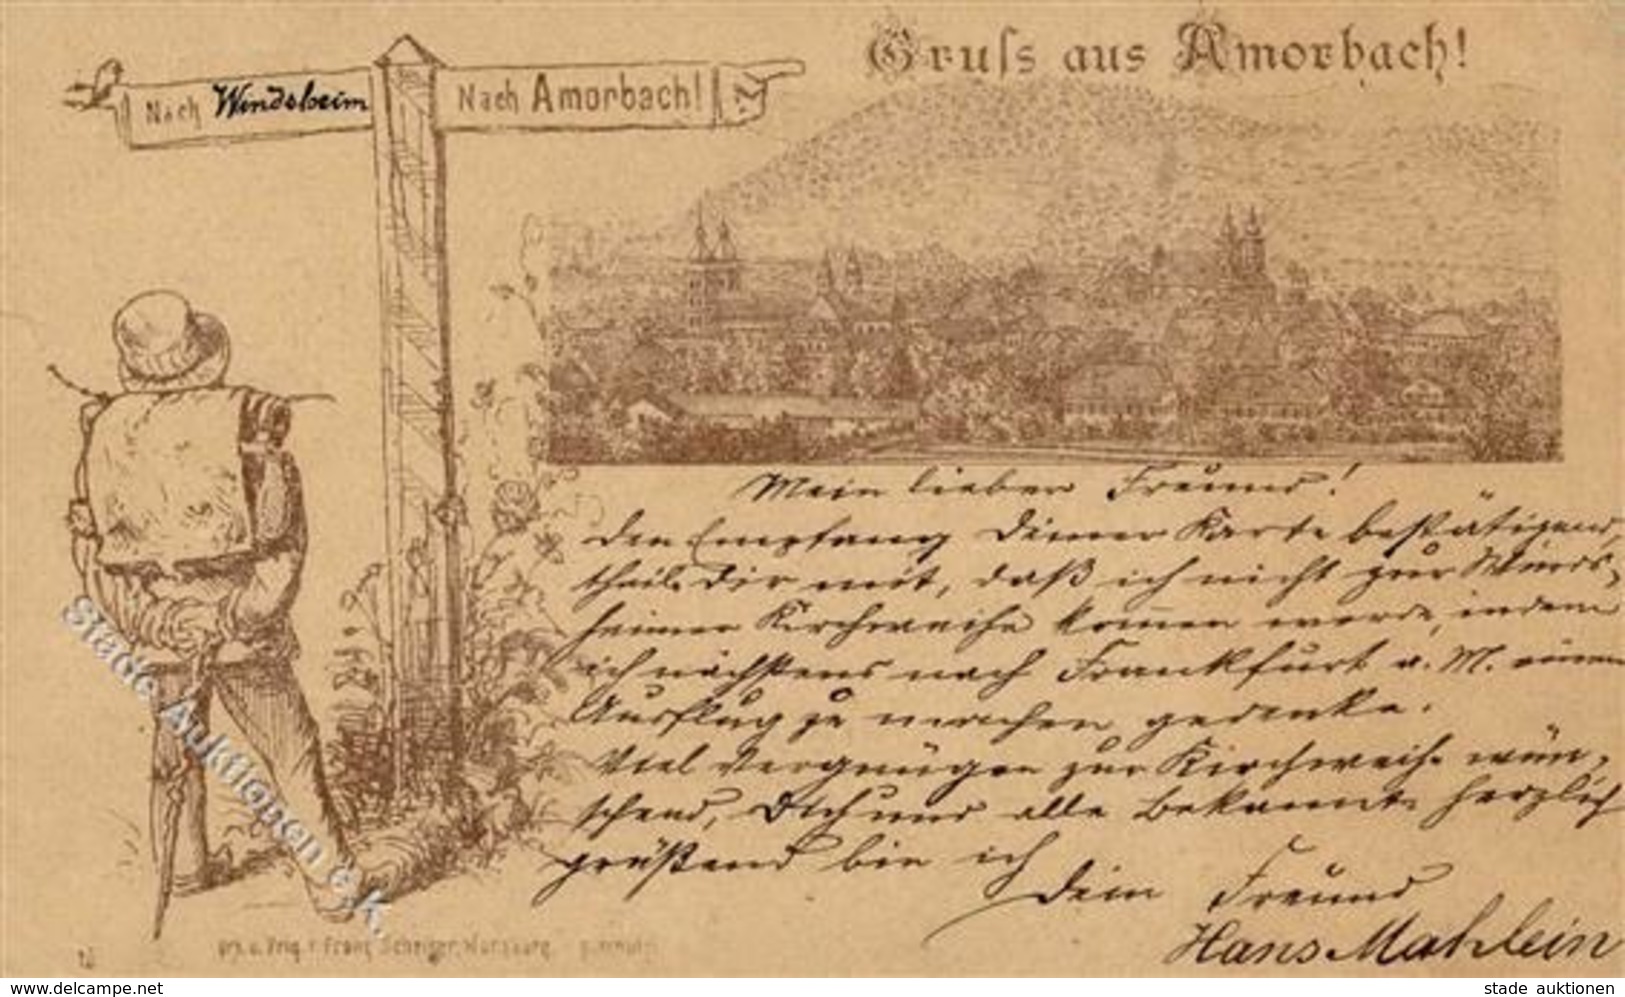 Gruss aus Amorbach!
Nach Windsheim
Nach Amorbach!
Mein lieber Freund!
Den Empfang Deiner Karte bestätigend,
theile Dir mit, daß ich nicht zur Winds-
heimer Kirchweihe kommen werde, indem
ich nächstens nach Frankfurt a. M. einen
Ausflug zu machen gedenke.
Viel Vergnügen zur Kirchweihe wün-
schend, Dich und alle Bekannte herzlich
grüßend bin ich
Dein Freund
Hans Mahlein
Stade Auktionen e.K.
delcampe.net
stade auktionen